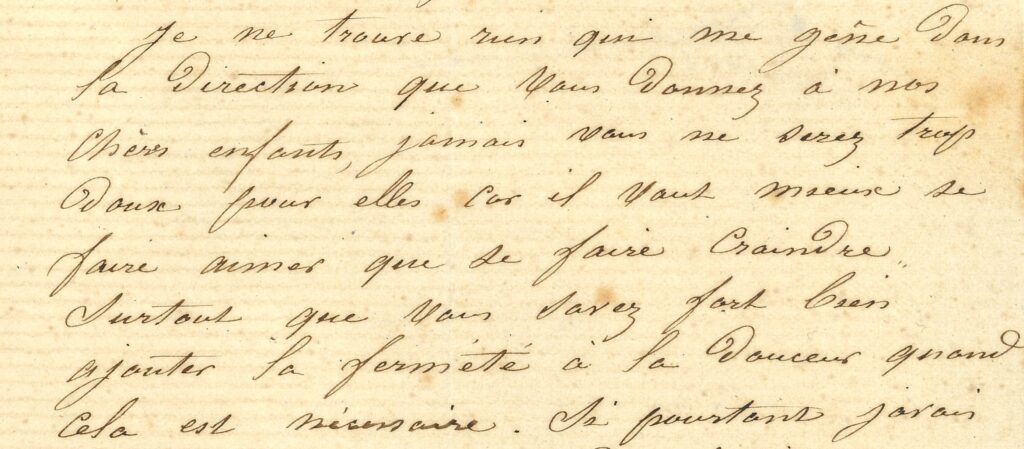 Je ne trouve rien qui me gêne dans
la direction que vous donnez à nos
chèrs enfants, jamais vous ne serez trop
doux pour elles car il vaut mieux se
faire aimer que se faire craindre,,
Surtout que vous savez fort bien
ajouter la fermété à la douceur quand
cela est nécessaire. Si pourtant javais